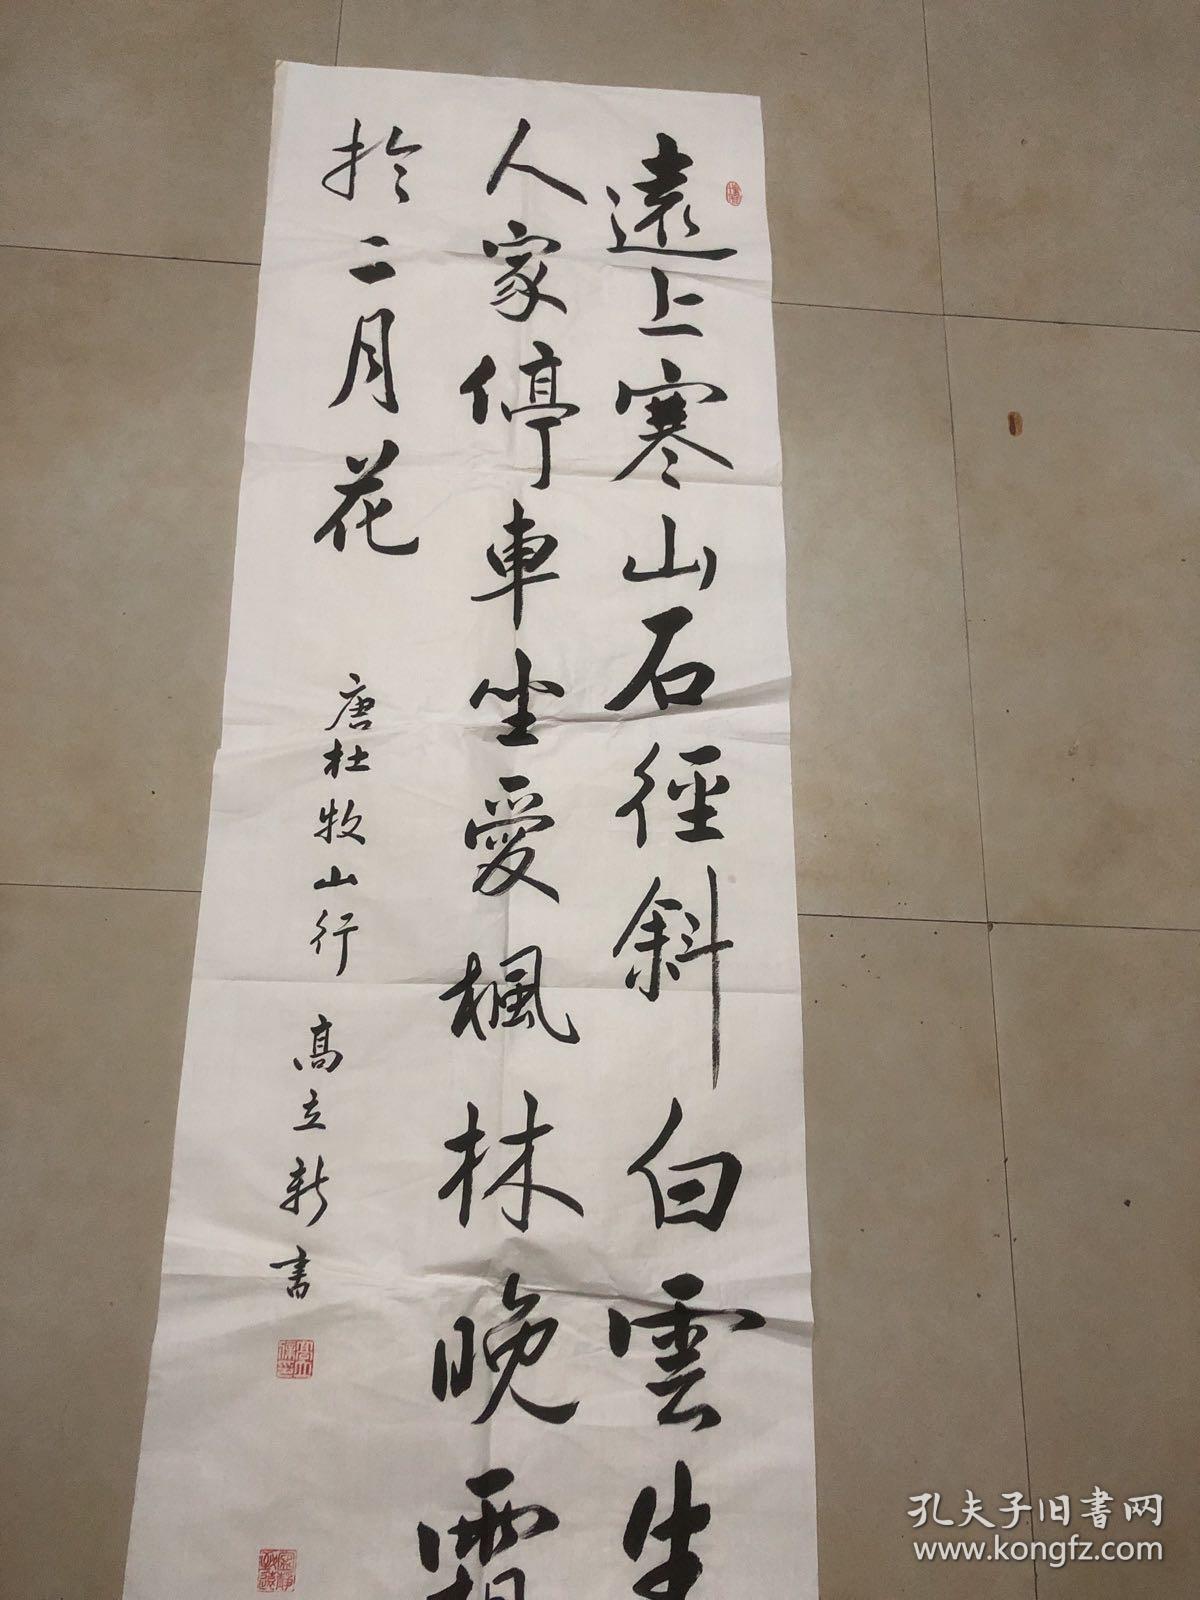 遠上寒山石徑斜白雲生
人家停車坐愛楓林晚霜
於二月花
唐杜牧山行 高立新書
孔夫子旧书网
www.kongfz.com